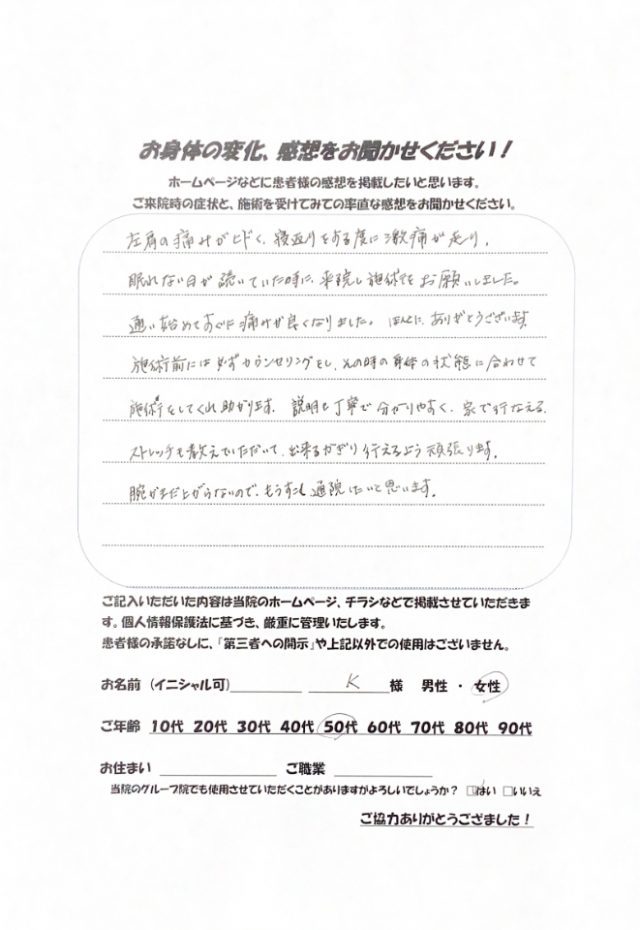 お身体の変化、感想をお聞かせください！
ホームページなどに患者様の感想を掲載したいと思います。
ご来院時の症状と、施術を受けてみての率直な感想をお聞かせください。
左肩の痛みがヒドく、寝返りをする度に激痛が走り、
眠れない日が続いていた時に、来院し施術をお願いしました。
通い始めてすぐに痛みが良くなりました。ほんとに、ありがとうございます。
施術前には必ずカウンセリングをし、その時の身体の状態に合わせて
施術をしてくれ助かります。説明も丁寧で分かりやすく、家で行なえる
ストレッチも教えていただいて、出来るかぎり行えるよう頑張ります。
腕がまだ上がらないので、もうすこし通院したいと思います。
ご記入いただいた内容は当院のホームページ、チラシなどで掲載させていただきま
す。個人情報保護法に基づき、厳重に管理いたします。
患者様の承諾なしに、「第三者への開示」や上記以外での使用はございません。
お名前（イニシャル可） K 様 男性 ・ 女性
ご年齢 10代 20代 30代 40代 50代 60代 70代 80代 90代
お住まい ご職業
当院のグループ院でも使用させていただくことがありますがよろしいでしょうか？ □はい □いいえ
ご協力ありがとうござました！